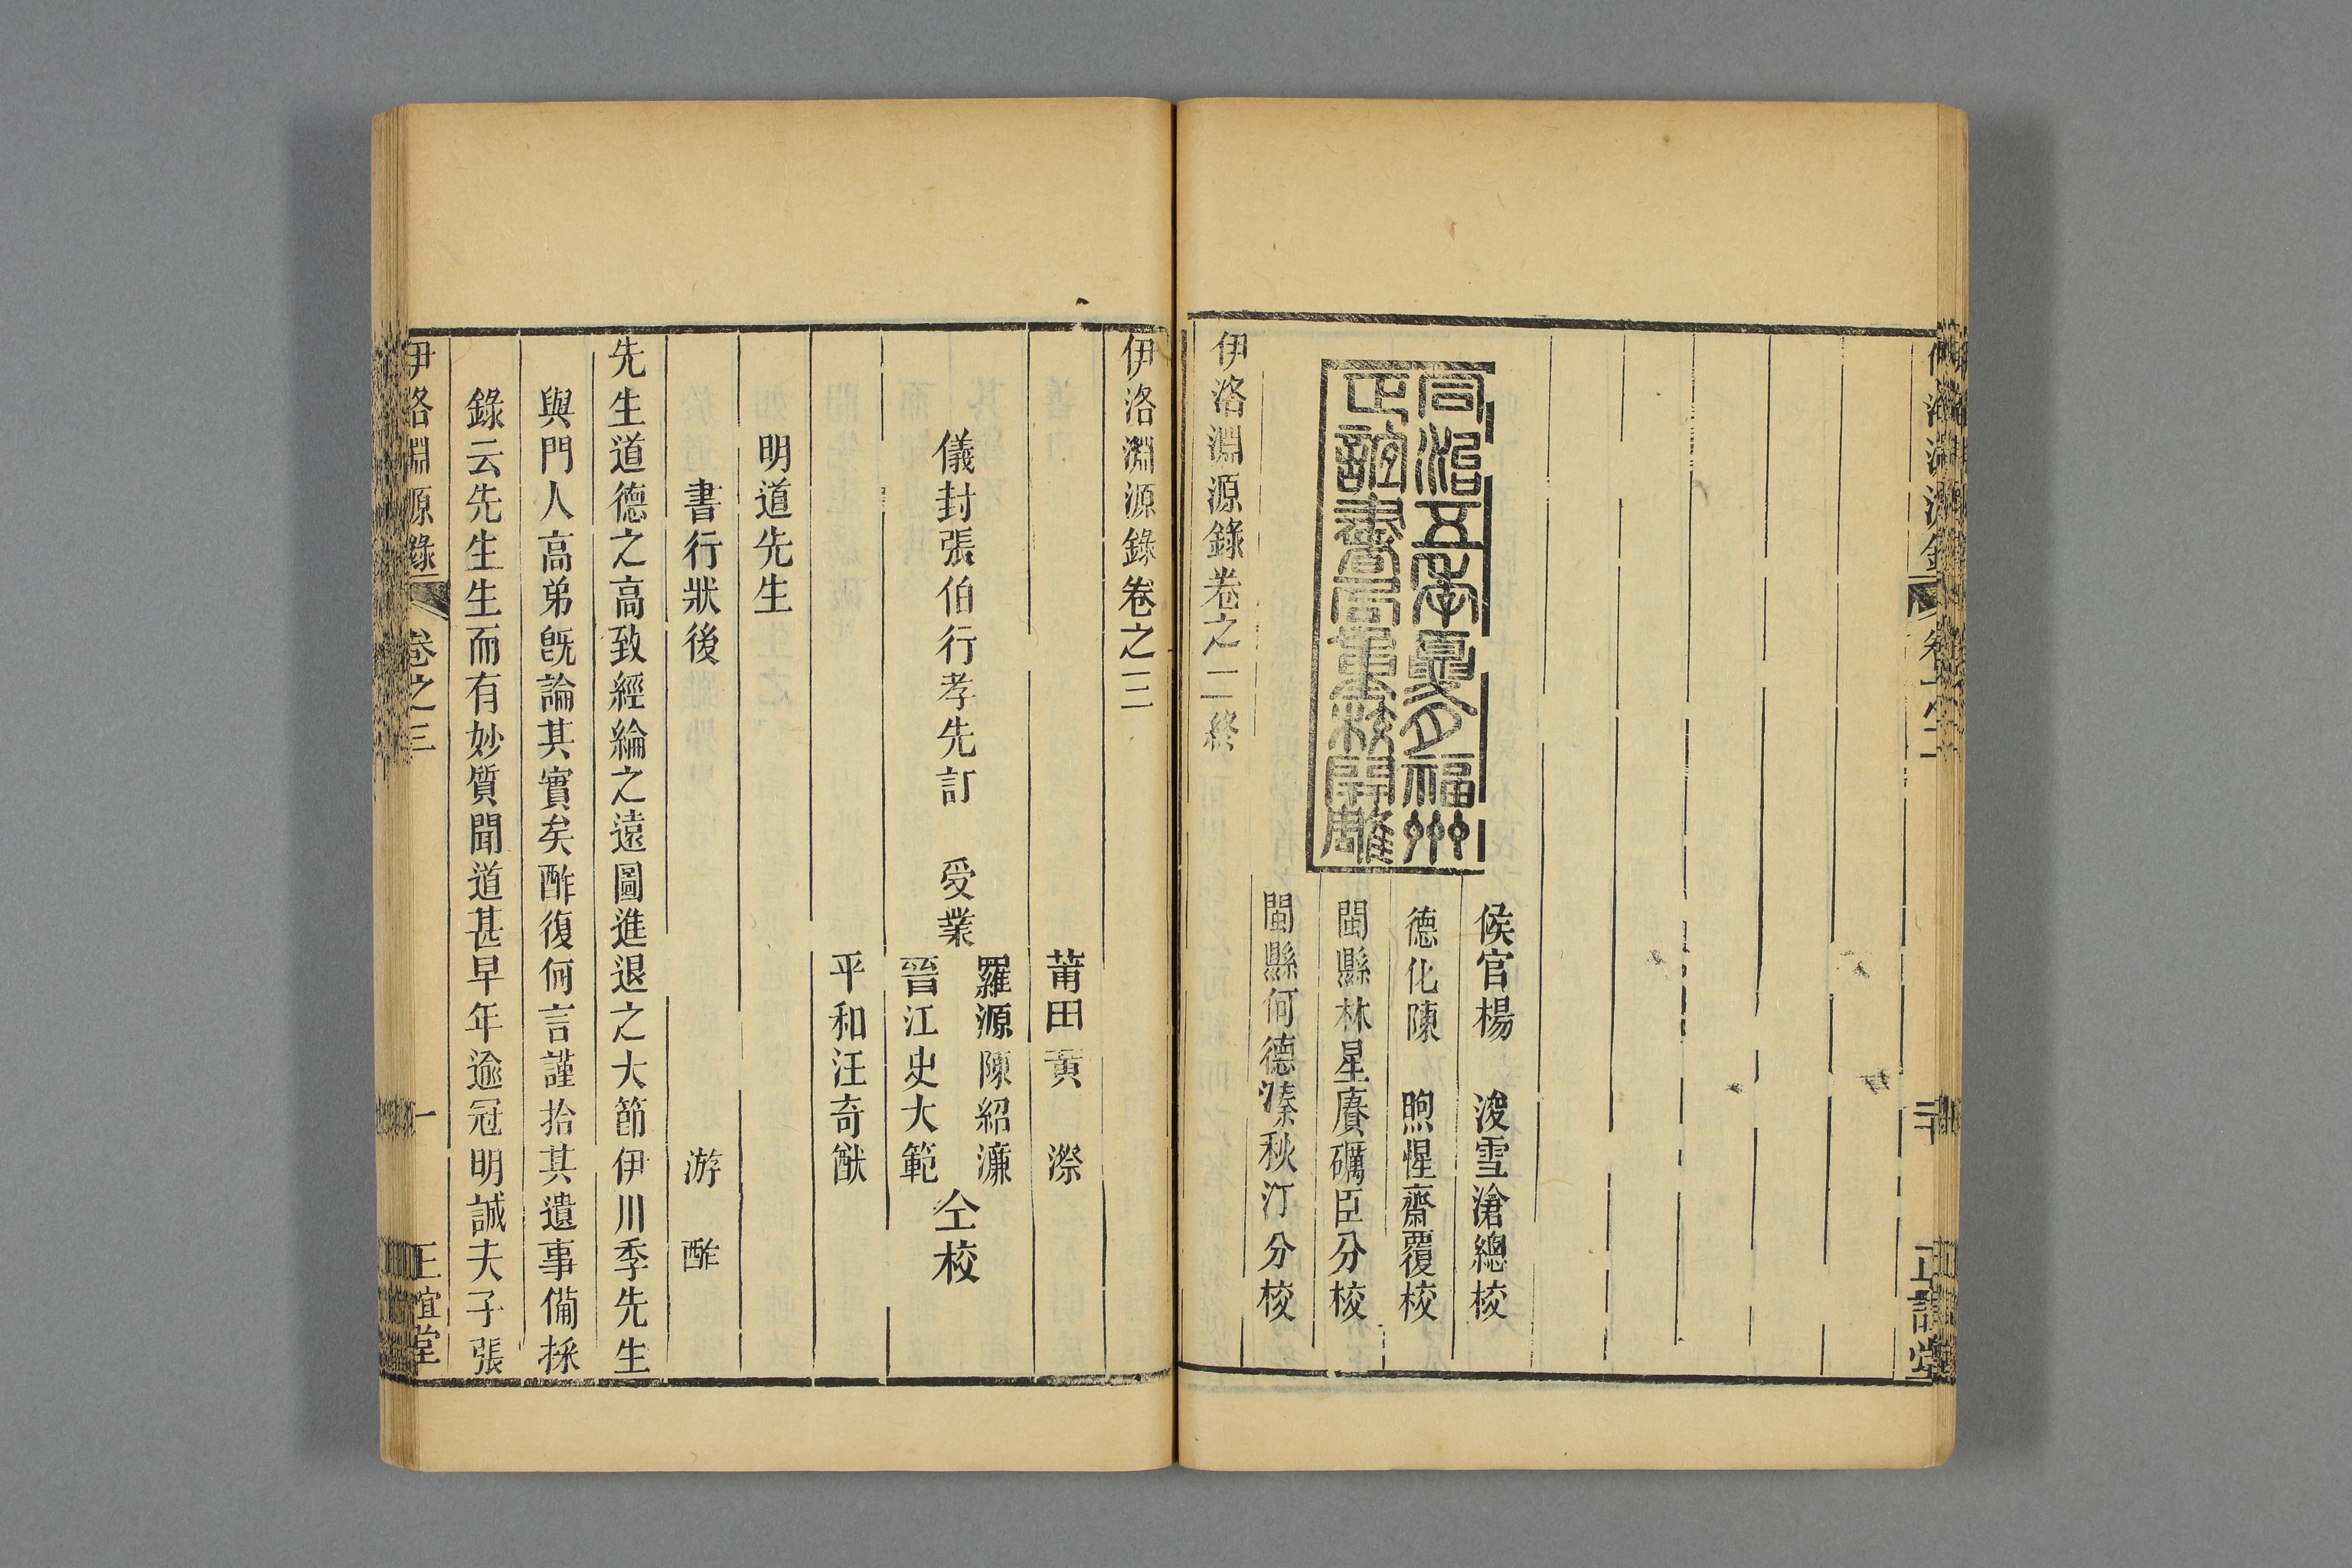 侯官楊　浚雪滄總校
德化陳　煦惺齋覆校
閩縣林星賡礪臣分校
閩縣何德溱秋汀分校
同治五年夏月福州
正誼書局重校開雕
伊洛淵源錄卷之二終
伊洛淵源錄卷之三
莆田黃　漈
儀封張伯行孝先訂　受業
羅源陳紹濂
晉江史大範
仝校
平和汪奇猷
明道先生
書行狀後　游　酢
先生道德之高致經綸之遠圖進退之大節伊川季先生
與門人高弟旣論其實矣酢復何言謹拾其遺事備採
錄云先生生而有妙質聞道甚早年逾冠明誠夫子張
伊洛淵源錄　卷之三　一　正誼堂